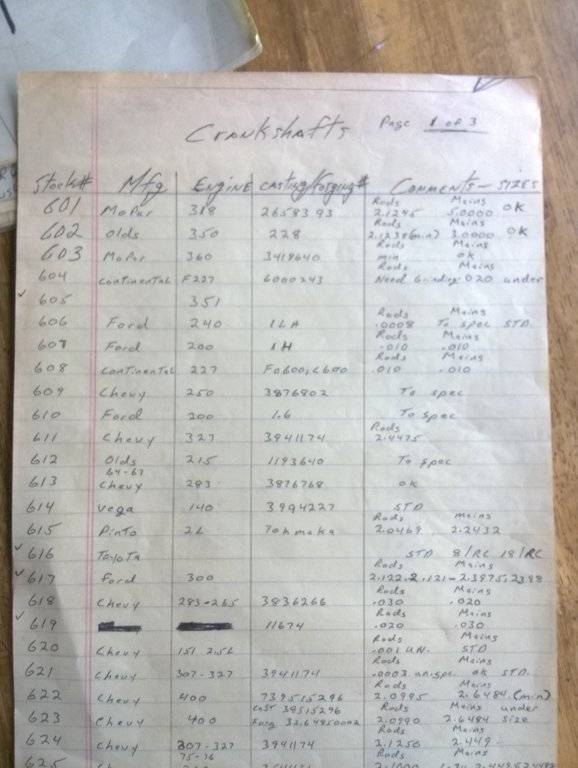 Crankshafts Page 1 of 3
Stock# Mfg Engine Casting/Forging# Comments - Sizes
Rods Mains
601 Mopar 318 2658393 2.1245 5.0000 OK
Rods Mains
602 Olds 350 228 2.1238(min) 3.0000 OK
Rods Mains
603 Mopar 360 3419640 min ok
Rods Mains
604 Continental F227 6000243 Need Grinding 020 under
605 351
Rods Mains
606 Ford 240 1LA .0008 To spec STD.
Rods Mains
607 Ford 200 1H .010 .010
Rods Mains
608 Continental 227 F0600,C600 .010 .010
609 Chevy 250 3876802 To spec
610 Ford 200 1.6 To spec
Rods
611 Chevy 327 3941174 2.4475
612 Olds 215 1193640 To spec
64-67
613 Chevy 283 3876768 ok
614 Vega 140 3994227 STD
Rods mains
615 Pinto 2L 2.0469 2.2432
616 Toyota STD 8/RC 18/RC
Rods Mains
617 Ford 300 2.122-2.121-2.3975,2398
Rods Mains
618 Chevy 283-265 3836266 .030 .020
Rods Mains
619 11674 .020 .030
Rods Mains
620 Chevy 151 2.5L .001 UN. STD
Rods Mains
621 Chevy 307-327 3941174 .0003 un.spc ok STD.
Rods Mains
622 Chevy 400 739515296 2.0995 2.6484(min)
Cast 39515296 Rods Mains under
623 Chevy 400 Forg 2.0990 2.6484 size
Rods Mains
624 Chevy 307-327 3941174 2.1250 2.449
75-76 Rods Mains
625